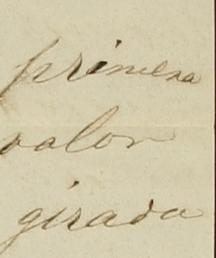 primera
valor
girada